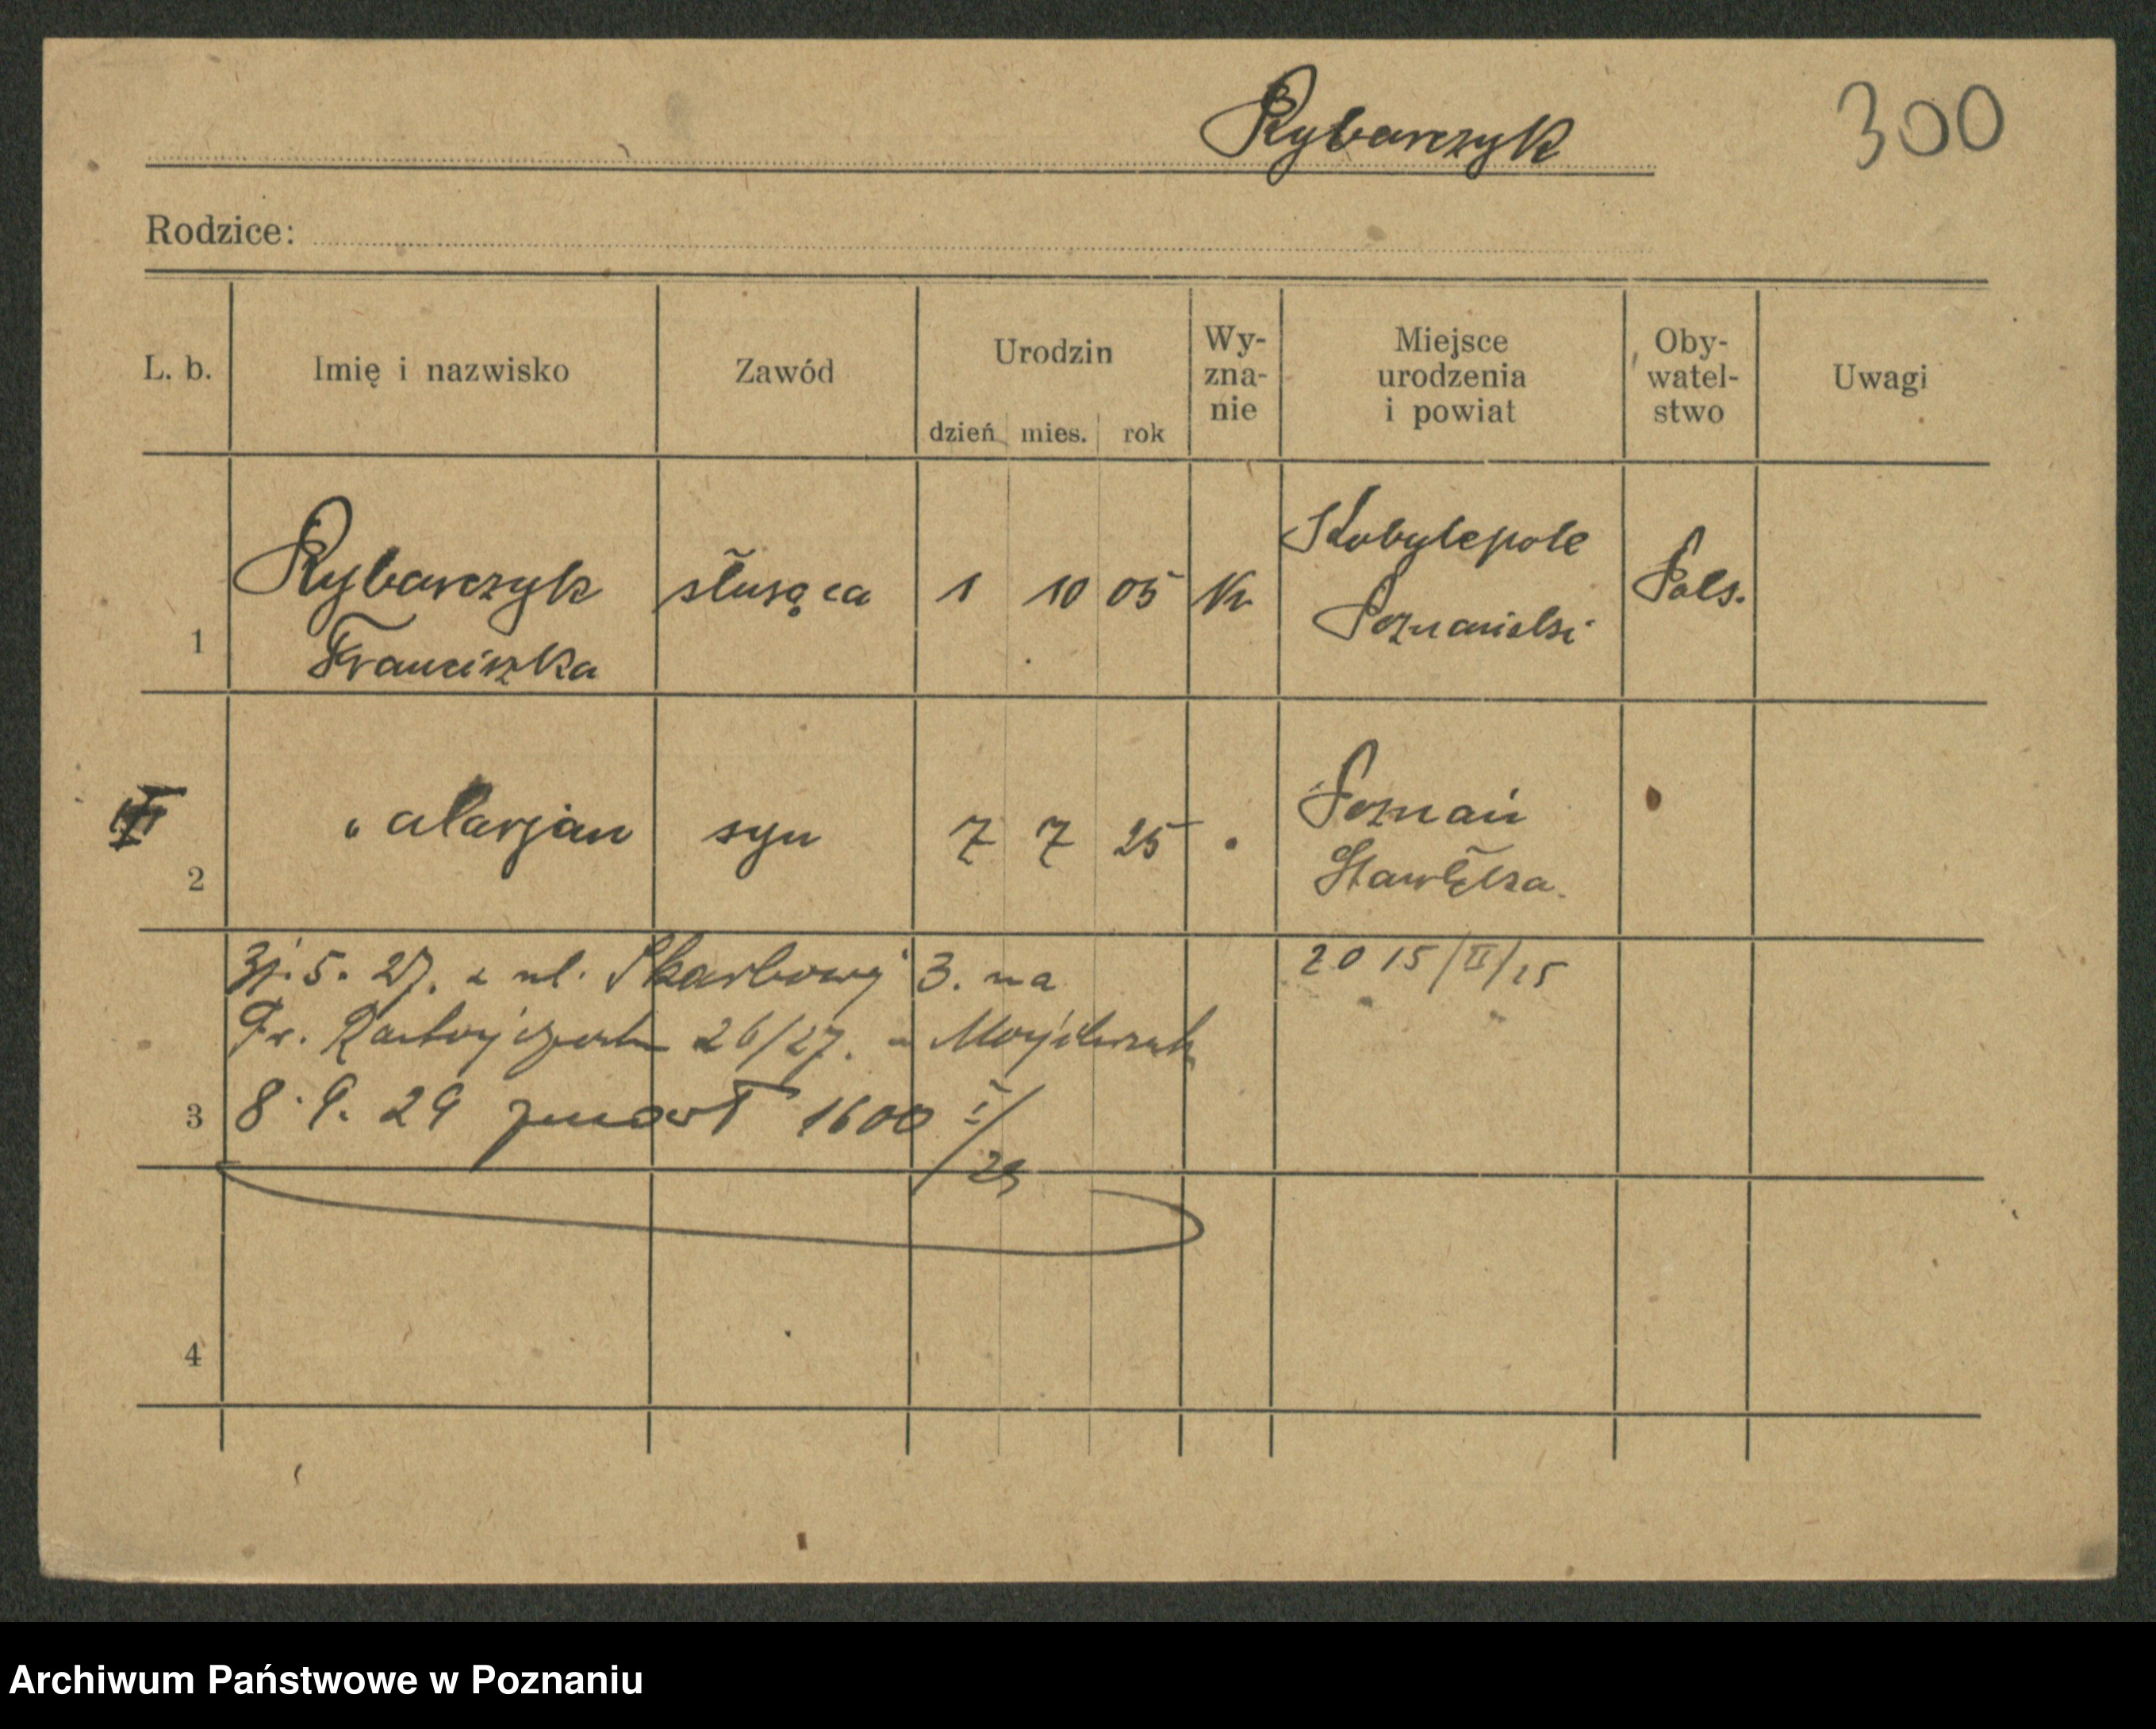 Rybarczyk
300
Rodzice:
L. b. Imię i nazwisko Zawód Urodzin dzień mies. rok Wy-zna-nie Miejsce urodzenia i powiat Oby-watel-stwo Uwagi
1 Rybarczyk Franciszka służąca 1 10 05 K Kobylepole Poznański Pols.
2 " Marjan syn 7 7 25 " Poznań "
5. 27. z ul. Skarbowej 3. na
Fr. Ratajczaka 26/27.
3 8. 9. 29 1600 I/29
20 15/II/25
4
Archiwum Państwowe w Poznaniu